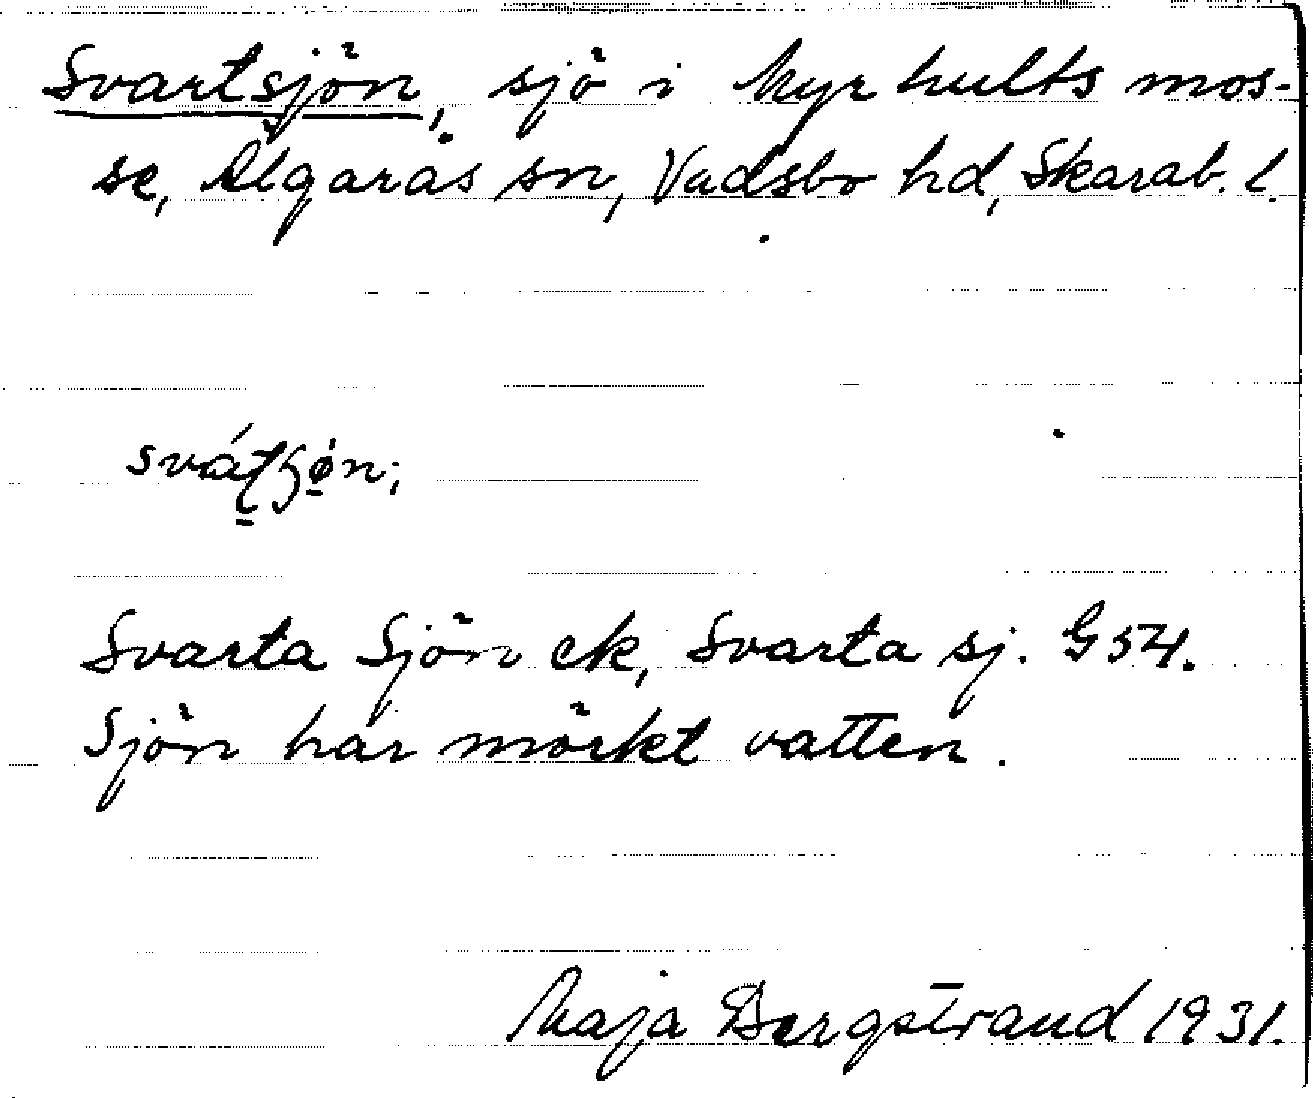 Svartsjön, sjö i Myrhults mos-
se, Älgarås sn, Vadsbo hd, Skarab. l.
Svarta Sjön ek, Svarta sj. G54.
Sjön har mörkt vatten.
Maja Bergstrand 1931.